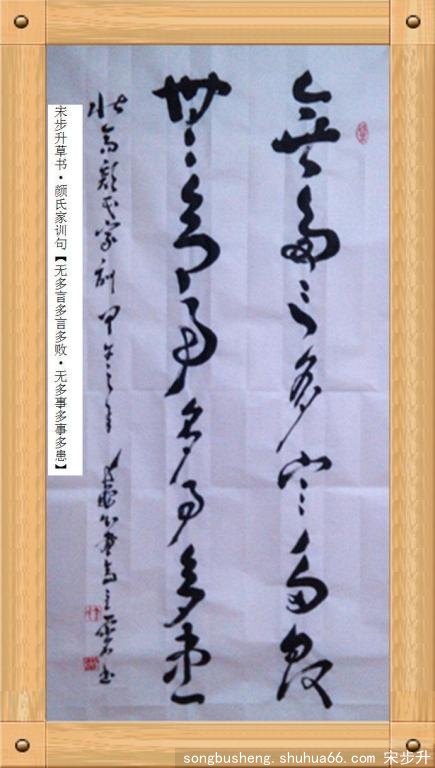 無多言多言多敗
無多事多事多患
顏氏家訓 甲午之年
宋步升草书·颜氏家训句【无多言多言多败·无多事多事多患】
songbusheng.shuhua66.com 宋步升